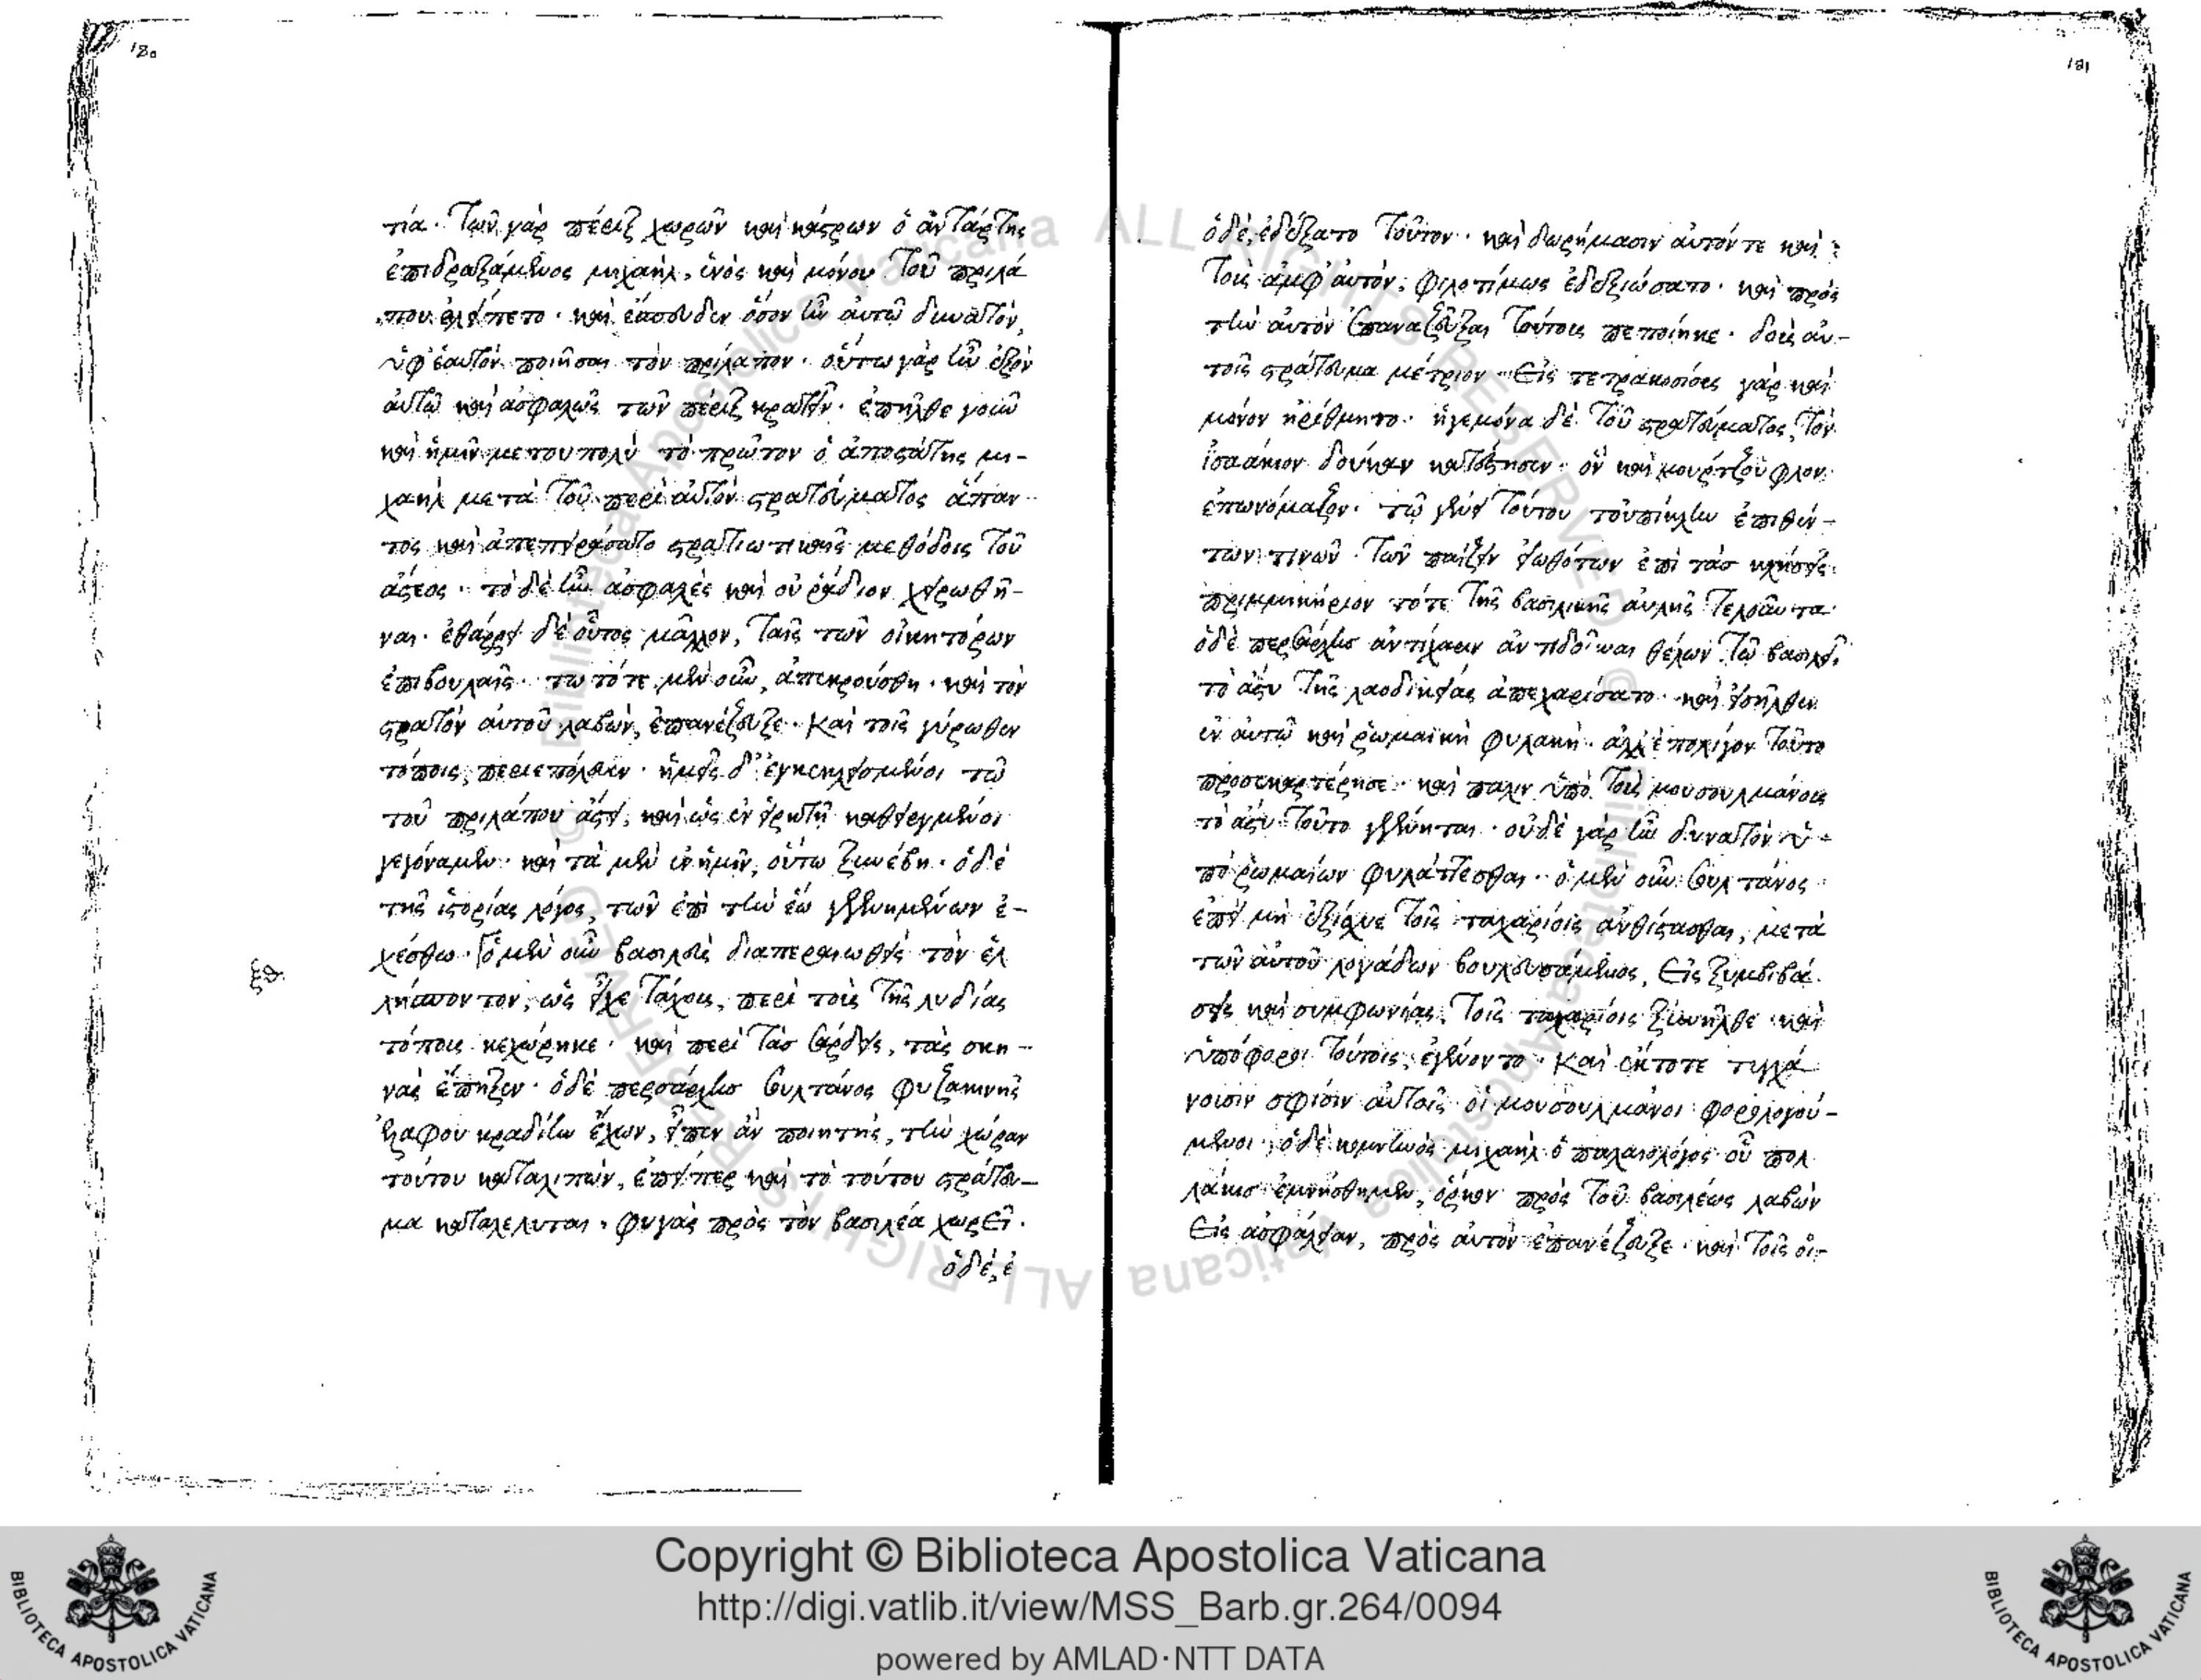 180
τία· τῶν γὰρ πέριξ χωρῶν καὶ κάστρων ὁ ἀντάρτης
ἐπιδραξάμενος μιχαὴλ, ἑνὸς καὶ μόνου τοῦ πριλά
που ἐλείπετο· καὶ ἔσπευδεν ὅσον ἦν αὐτῶ δυνατὸν,
ὑφ' ἑαυτὸν ποιῆσαι τὸν πρίλαπον· οὕτω γὰρ ἦν ἐξὸν
αὐτῶ καὶ ἀσφαλῶς τῶν πέριξ κρατεῖν· ἐπῆλθε γοῦν
καὶ ἡμῖν μετουπολὺ τὸ πρῶτον ὁ ἀποστάτης μι-
χαὴλ μετὰ τοῦ περὶ αὐτὸν στρατεύματος ἅπαν-
τος καὶ ἀπεπειράσατο στρατιωτικαῖς μεθόδοις τοῦ
ἄστεος· τὸ δὲ ἦν ἀσφαλὲς καὶ οὐ ῥάδιον χειρωθῆ-
ναι· ἐθάρρει δὲ οὗτος μᾶλλον, ταῖς τῶν οἰκητόρων
ἐπιβουλαῖς· τω τότε μὲν οὖν, ἀπεκρούσθη· καὶ τὸν
στρατὸν αὐτοῦ λαβὼν, ἐπανέζευξε· καὶ τοῖς γύρωθεν
τόποις, περιεπόλευεν· ἡμεῖς δ' ἐγκεκλεισμένοι τῶ
τοῦ πριλάπου ἄστει, καὶ ὡς ἐν εἱρκτῆ καθειργμένοι
γεγόναμεν· καὶ τὰ μὲν ἐν ἡμῖν, οὕτω ξυνέβη· ὁ δὲ
τῆς ἱστορίας λόγος, τῶν ἐπὶ τὴν ἕω γεγενημένων ἐ-
χέσθω· ὁ μὲν οὖν βασιλεὺς διαπεραιωθεὶς τὸν ἑλ
ξθ.
λήσποντον, ὡς εἶχε τάχους, περὶ τοὺς τῆς λυδίας
τόπους κεχώρηκε· καὶ περὶ τὰς σάρδεις, τὰς σκη-
νὰς ἔπηξεν· ὁ δὲ περσάρχης σουλτάνος φυζακινῆς
ἐλάφου κραδίην ἔχων, εἶπεν ἂν ποιητὴς, τὴν χώραν
τούτου καταλιπὼν, ἐπείπερ καὶ τὸ τούτου στράτευ-
μα καταλέλυται· φυγὰς πρὸς τὸν βασιλέα χωρεῖ·
ὁ δὲ, ἐ
181
ὁ δὲ, ἐδέξατο τοῦτον· καὶ δωρήμασιν αὐτόν τε καὶ
τοὺς ἀμφ' αὐτὸν, φιλοτίμως ἐδεξιώσατο· καὶ πρὸς
τὴν αὐτὸν ἐπαναζεῦξαι τούτοις πεποίηκε· δοὺς αὐ-
τοῖς στράτευμα μέτριον· εἰς τετρακοσίους γὰρ καὶ
μόνον ἠρίθμητο· ἡγεμόνα δὲ τοῦ στρατεύματος, τὸν
ἰσαάκιον δούκαν κατέστησεν· ὃν καὶ μουρτζουφλον
ἐπωνόμαζον· τῶ γένει τούτου τοὐπίκλην ἐπιθέν-
των τινῶν· τῶν παίζειν εἰωθότων ἐπὶ τὰς κλήσεις·
πριμμικήριον τότε τῆς βασιλικῆς αὐλῆς τελοῦντα
ὁ δὲ περσάρχης ἀντίχαριν ἀντιδοῦναι θέλων τῶ βασιλεῖ,
τὸ ἄστυ τῆς λαοδικείας ἀπεχαρίσατο· καὶ εἰσῆλθεν
ἐν αὐτῶ καὶ ῥωμαϊκὴ φυλακή· ἀλλ' ἐπολίγον τοῦτο
προσεκαρτέρησε· καὶ πάλιν ὑπὸ τοὺς μουσουλμάνους
τὸ ἄστυ τοῦτο γεγένηται· οὐδὲ γὰρ ἦν δυνατὸν ὑ-
πὸ ῥωμαίων φυλάττεσθαι· ὁ μὲν οὖν σουλτάνος
ἐπεὶ μὴ ἐξίσχυε τοῖς ταχαρίοις ἀνθίστασθαι, μετὰ
τῶν αὐτοῦ λογάδων βουλευσάμενος, εἰς ξυμβιβά
σεις καὶ συμφωνίας, τοῖς ταχαρίοις ξυνῆλθε· καὶ
ὑπόφοροι τούτοις, ἐγένοντο· καὶ ἔκτοτε τυγχά
νουσιν σφίσιν αὐτοῖς οἱ μουσουλμάνοι φορολογού-
μενοι· ὁ δὲ κομνηνὸς μιχαὴλ ὁ παλαιολόγος οὗ πολ
λάκις ἐμνήσθημεν, ὅρκον πρὸς τοῦ βασιλέως λαβὼν
εἰς ἀσφάλειαν, πρὸς αὐτὸν ἐπανέζευξε· καὶ τοῖς οἰ-
Copyright © Biblioteca Apostolica Vaticana
http://digi.vatlib.it/view/MSS_Barb.gr.264/0094
powered by AMLAD·NTT DATA
BIBLIOTECA APOSTOLICA VATICANA
BIBLIOTECA APOSTOLICA VATICANA